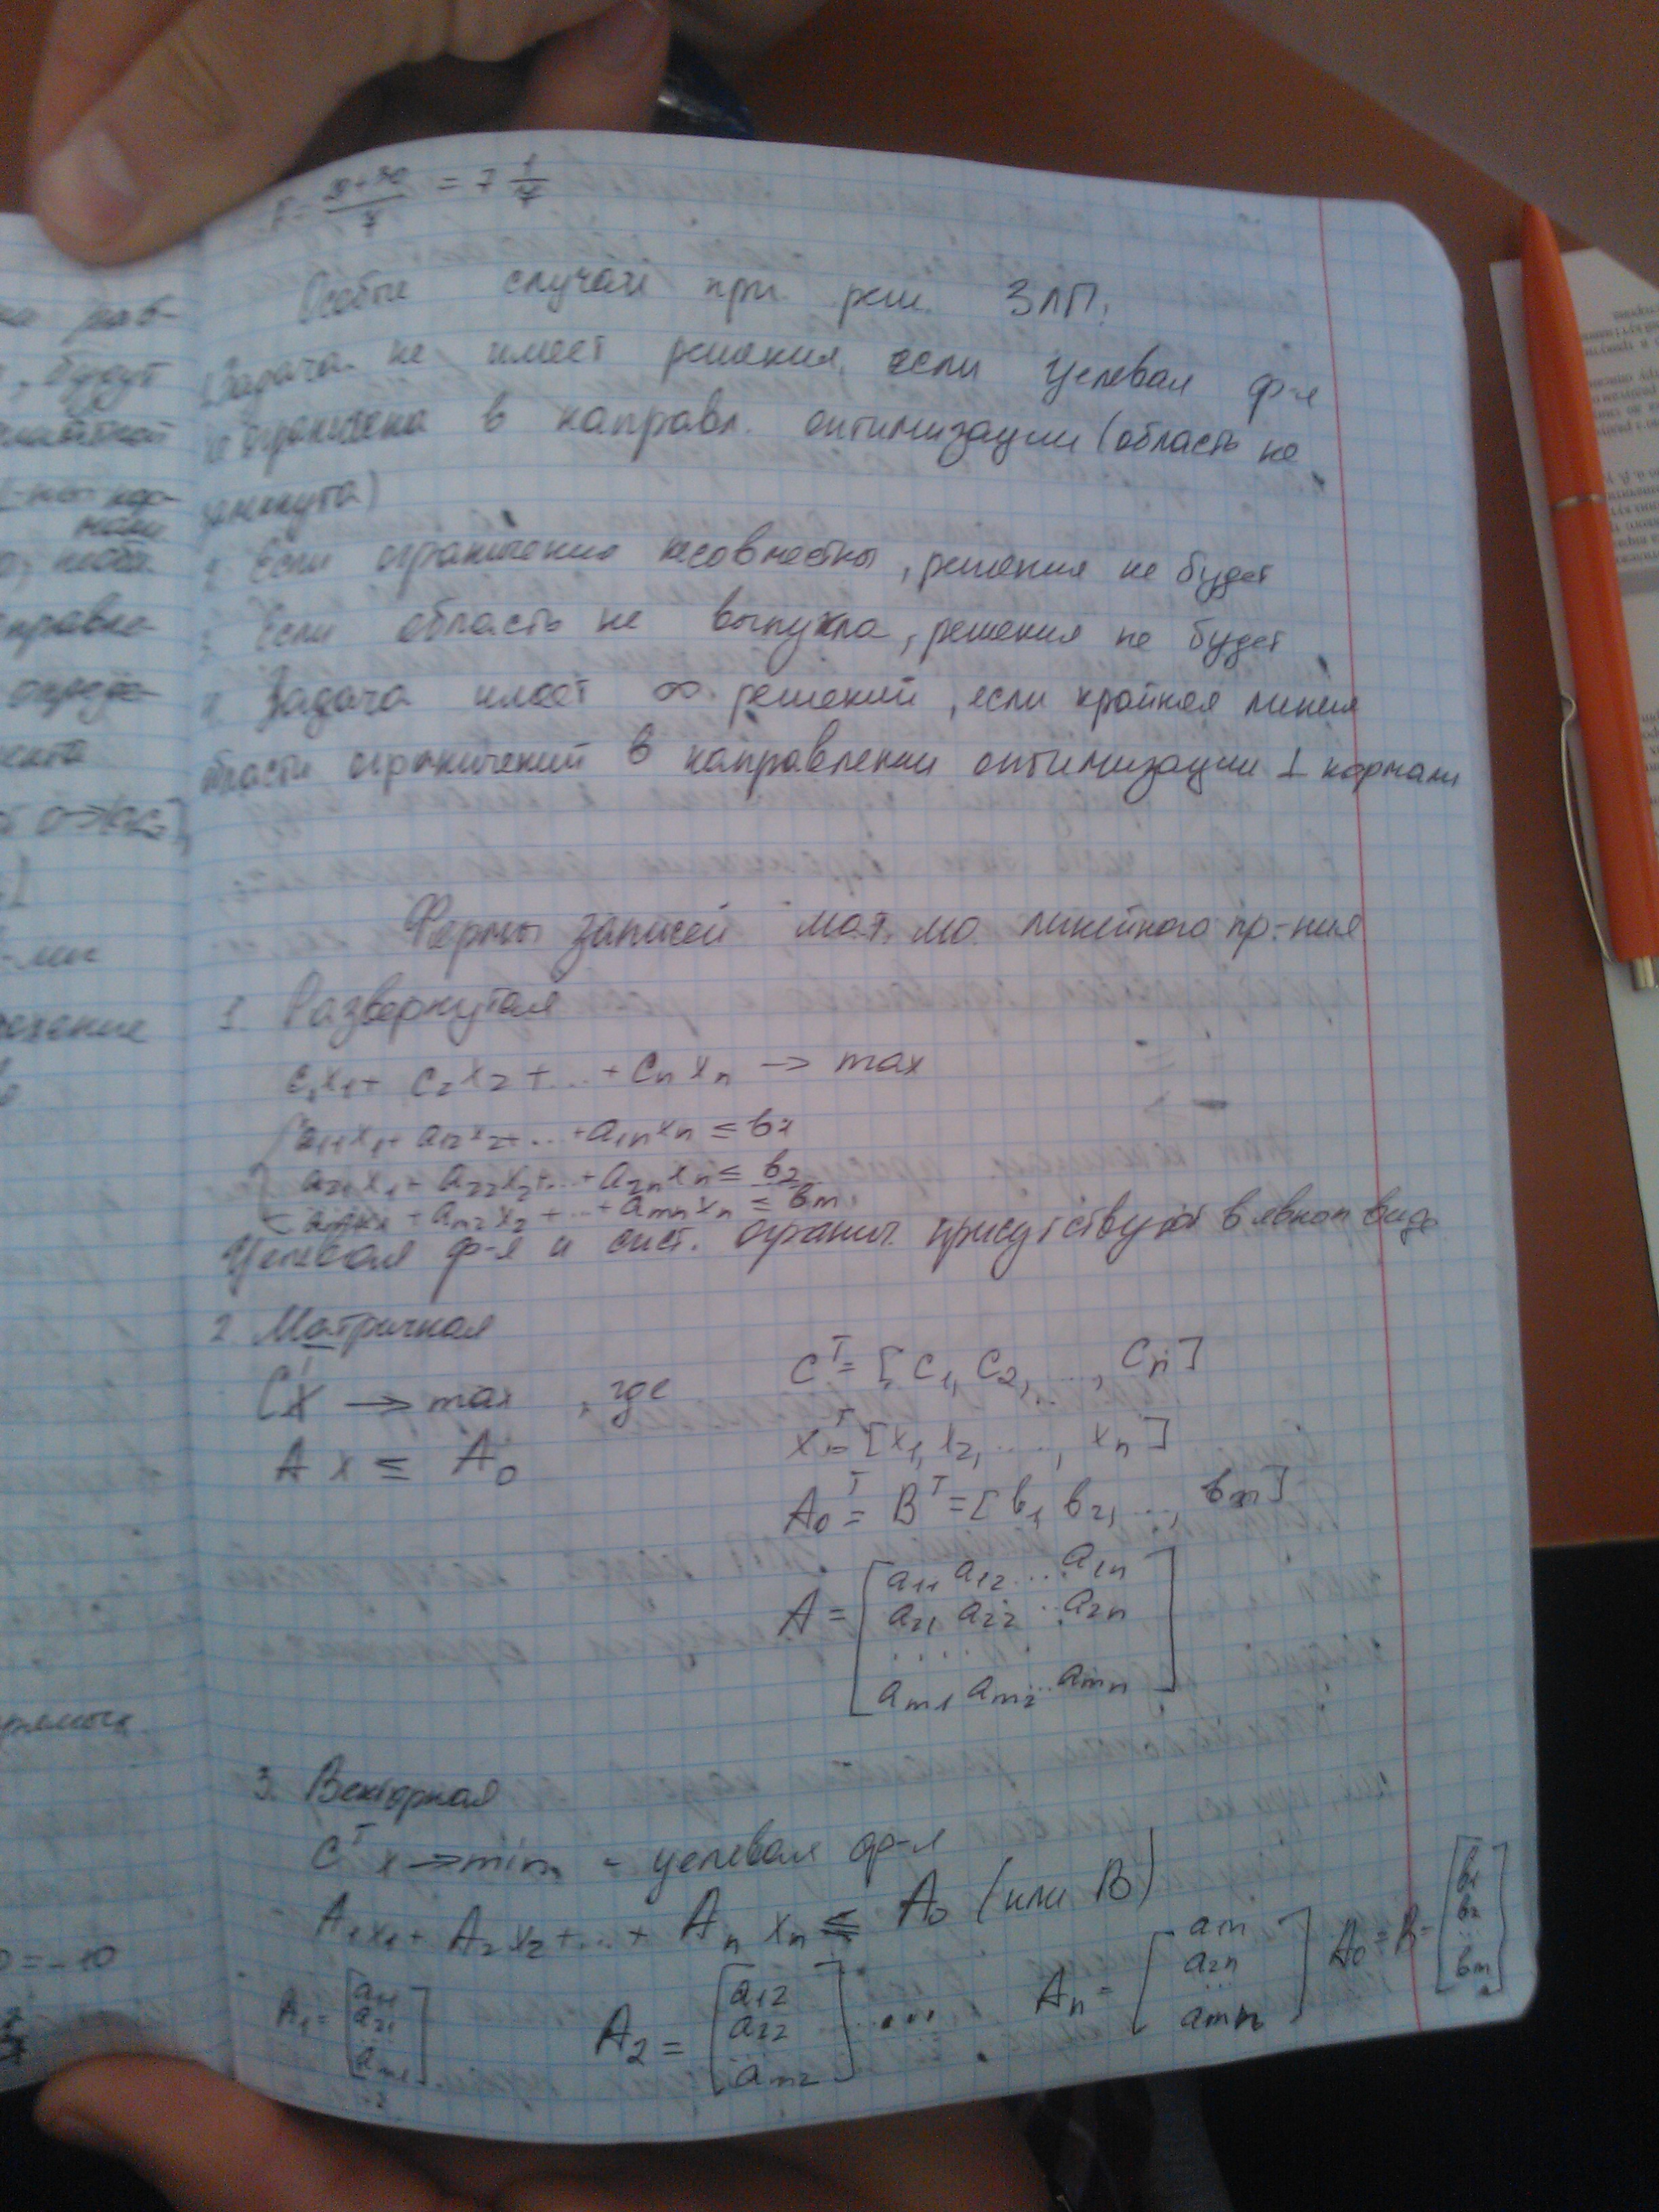 F = (20+30)/7 = 7 1/7
Особые случаи при реш. ЗЛП:
1. Задача не имеет решения, если целевая ф-я
не ограничена в направл. оптимизации (область не
замкнута)
2. Если ограничения несовместны, решения не будет
3. Если область не выпукла, решения не будет
4. Задача имеет ∞ решений, если крайняя линия
области ограничений в направлении оптимизации ⊥ нормали
Формы записей мат. мо. линейного пр-ния
1 Развернутая
c₁x₁ + c₂x₂ + ... + cₙxₙ → max
a₁₁x₁ + a₁₂x₂ + ... + a₁ₙxₙ ≤ b₁
a₂₁x₁ + a₂₂x₂ + ... + a₂ₙxₙ ≤ b₂
aₘ₁x₁ + aₘ₂x₂ + ... + aₘₙxₙ ≤ bₘ
Целевая ф-я и сист. огранич. присутствуют в явном виде
2 Матричная
CᵀX → max , где Cᵀ = [c₁, c₂, ..., cₙ]
A x ≤ A₀ xᵀ = [x₁, x₂, ...., xₙ]
A₀ᵀ = Bᵀ = [b₁, b₂, ..., bₘ]
A = [a₁₁ a₁₂ ... a₁ₙ
a₂₁ a₂₂ .. a₂ₙ
. . . . .
aₘ₁ aₘ₂ ... aₘₙ]
3. Векторная
Cᵀ x → min - целевая ф-я
A₁x₁ + A₂x₂ + ... + Aₙxₙ ≤ A₀ (или B)
A₁ = [a₁₁ a₂₁ aₘ₁] A₂ = [a₁₂ a₂₂ ... aₘ₂] .... Aₙ = [a₁ₙ a₂ₙ ... aₘₙ] A₀ = B = [b₁ b₂ ... bₘ]